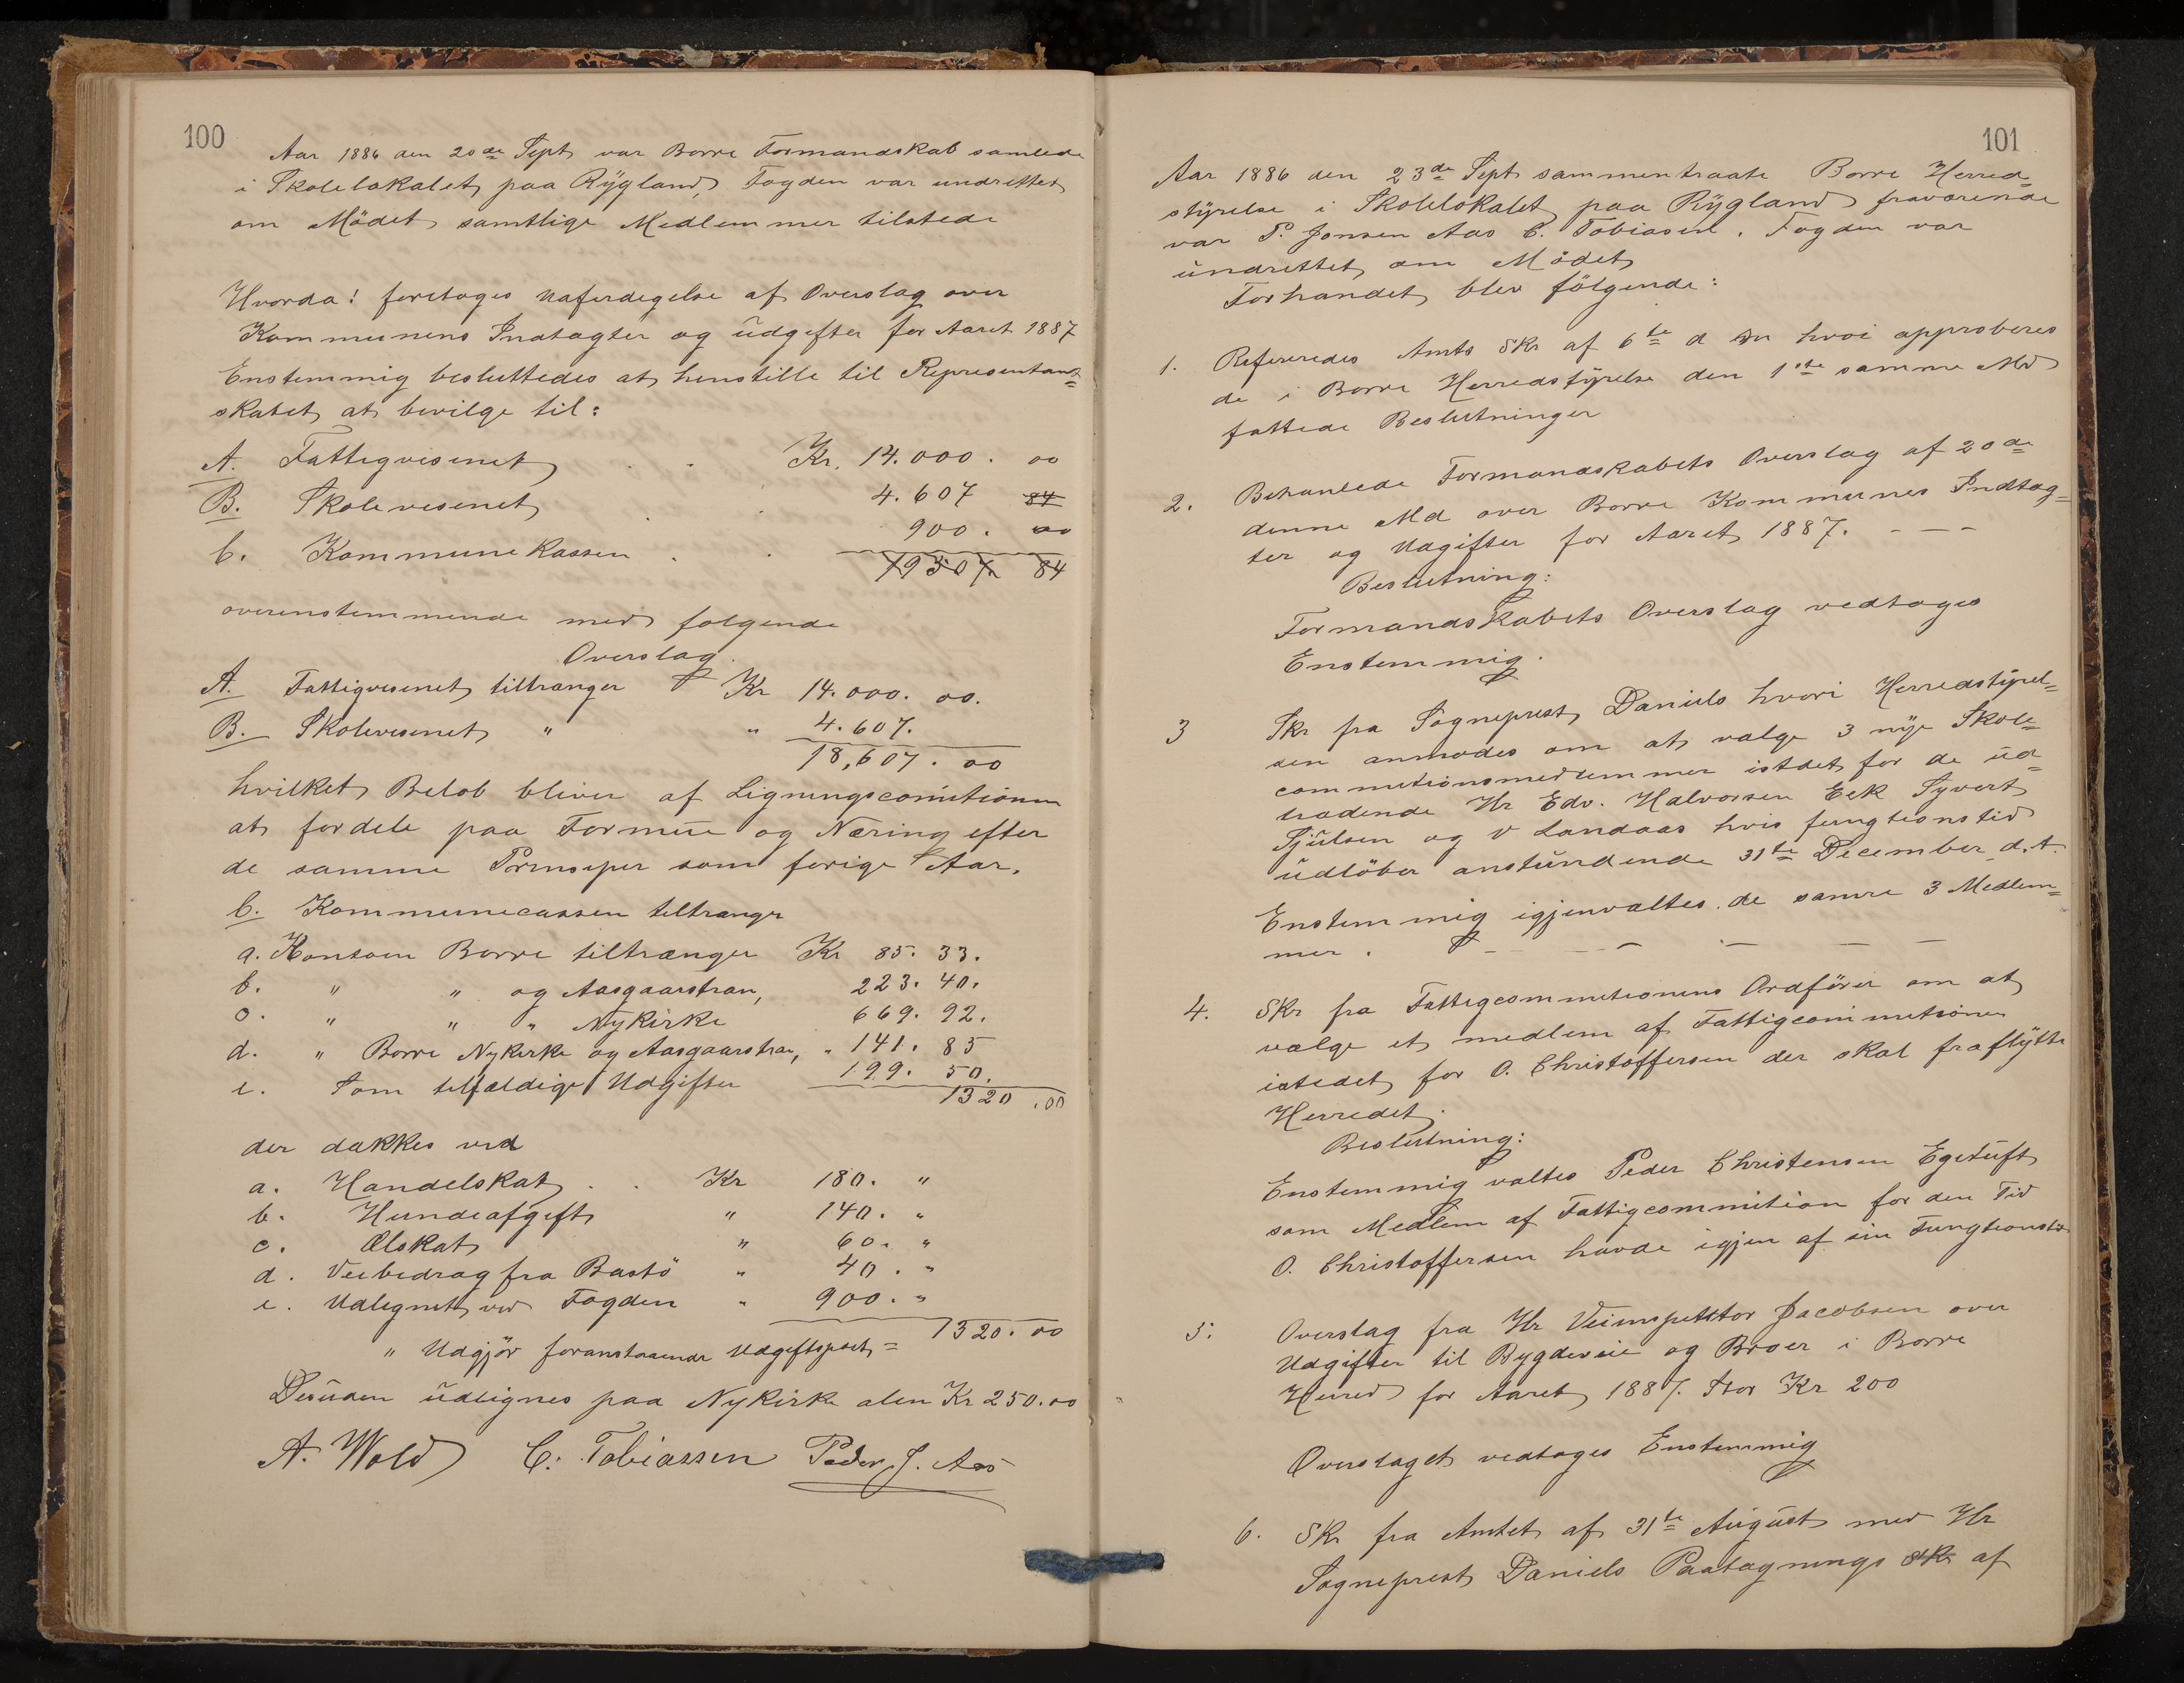 100
Aar 1886 den 20de Sept var Borre Formandskab samlede
i Skolelokalet paa Rÿgland, Fogden var undrettet
om Mödet samtlige Medlemmer tilstede
Hvorda! foretoges Uaferdegelse af Overslag over
Kommunens Indtagter og üdgifter for Aaret 1887
Enstemmig besluttedes at henstille til Representant=
skabet at bevilge til:
A. Fattigvesenet . . Kr. 14.000. 00
B. Skolevesenet . . 4.607 84
C. Kommunekassen . . 900. 00
19507 84
overenstemmende med folgende
Overslag.
A. Fattigvesenet tiltranger Kr 14.000. 00.
B. Skolevesenet " " 4.607.
18,607. 00
hvilket Belob bliver af Ligningscomitionen
at fordele paa Formüe og Næring efter
de samme Prinsiper som forige Aar.
C. Kommunecassen teltranger
a. Kontoen Borre tiltrænger Kr 85. 33.
b. " " og Aasgaarstran, 223. 40.
c. " " " Nykirke 669. 92.
d. " Borre Nykirke og Aasgaarstran, " 141. 85
e. Som telfældige Udgifter 199. 50.
1320.00
der dakkes ved
a. Handelskat . . Kr 180. "
b. Hundeafgift " 140. "
c. Ølskat " 60. "
d. Veibedrag fra Bastö " 40. "
e. Udlignet ved Fogden " 900. "
" Udgjör foranstaaende Udgiftspost = 1320.00
Desüden üdlignes paa Nykirke alen Kr 250.00
A. Wold C. Tobiassen Peder J. Aas
101
Aar 1886 den 23de Sept sammentraate Borre Herred=
stÿrelse i Skolelokalet paa Rÿgland fravorende
var P. Jonsen Aas C. Tobiasen. Fogden var
ündrettet om Mödet
Forhandet blev fölgende:
1. Refereredes Amts Skr af 6te d M hvoi approberes
de i Borre Herredstÿrelse den 1ste samme Md
fattede Beslutninger
2. Behanlede Formandskabets Overslag af 20de
denne Md over Borre Kommunes Indtag=
ter og Udgifter for Aaret 1887. - — -
Beslutning:
Formandskabets Overslag vedtoges
Enstemmig.
3 Skr fra Sogneprest Daniels hvori Herredstÿrel=
sen anmodes om at valge 3 nÿe Skole=
commitionsmedlemmer istdet for de üd=
tradende Hr Edv. Halvorsen Eek Syvert
Sjülsen og v Landaas hvis fungtionstid
üdlöber anstündende 31te December d.A.
Enstemmig igjenvaltes de samre 3 Medlem=
mer. - — - — - —
4. Skr fra Fattigcommitionens Ordförer om at
valge et medlem af Fattigcommitionen
istedet for O. Christoffersen der skal fraflÿtte
Herredet.
Beslutning:
Enstemmig valtes Peder Christensen Egetüft
som Medlem af Fattigcommition for den Tid
O. Christoffersen havde igjen af sin Fungtionstid
5. Overslag fra Hr Veiinspektor Jacobsen over
Udgifter til Bygdeveie og Broer i Borre
Herred for Aaret 1887. Stor Kr 200
Overslaget vedtoges Enstemmig
6. Skr fra Amtet af 31te Aügüst med Hr
Sogneprest Daniels Paategnings Skr af